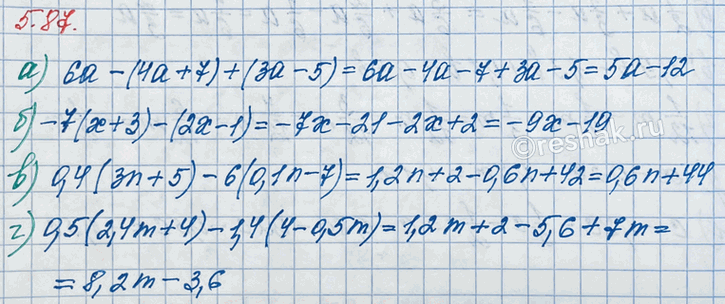 5.87.
а) 6a − (4a + 7) + (3a − 5) = 6a − 4a − 7 + 3a − 5 = 5a − 12
б) −7(x + 3) − (2x − 1) = −7x − 21 − 2x + 2 = −9x − 19
в) 0,4(3n + 5) − 6(0,1n − 7) = 1,2n + 2 − 0,6n + 42 = 0,6n + 44
г) 0,5(2,4m + 4) − 1,4(4 − 0,5m) = 1,2m + 2 − 5,6 + 7m =
= 8,2m − 3,6
©reshak.ru